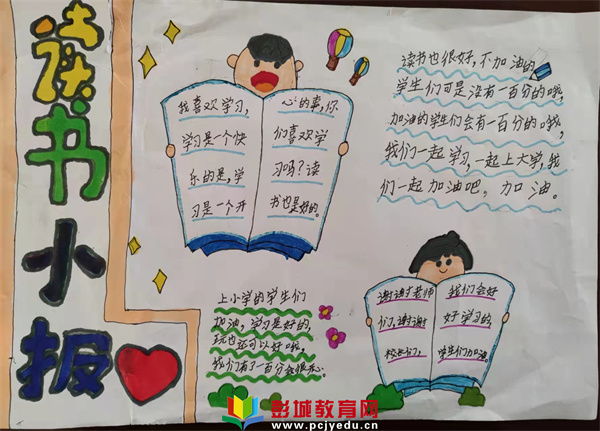 读书小报
我喜欢学习,
学习是一个快
乐的是,学
习是一个开
心的事,你
们喜欢学
习吗?读
书也是好的。
读书也很好,不加油的
学生们可是没有一百分的哦,
加油的学生们会有一百分的哦,
我们一起学习,一起上大学,我
们一起加油吧,加油。
上小学的学生们
加油,学习是好的,
玩也还可以好啦,
我们有了一百分会很开心。
谢谢老师
们,谢谢
校长们,
我们会好
好学习的,
学生们加油。
彭城教育网
www.pcjyedu.cn